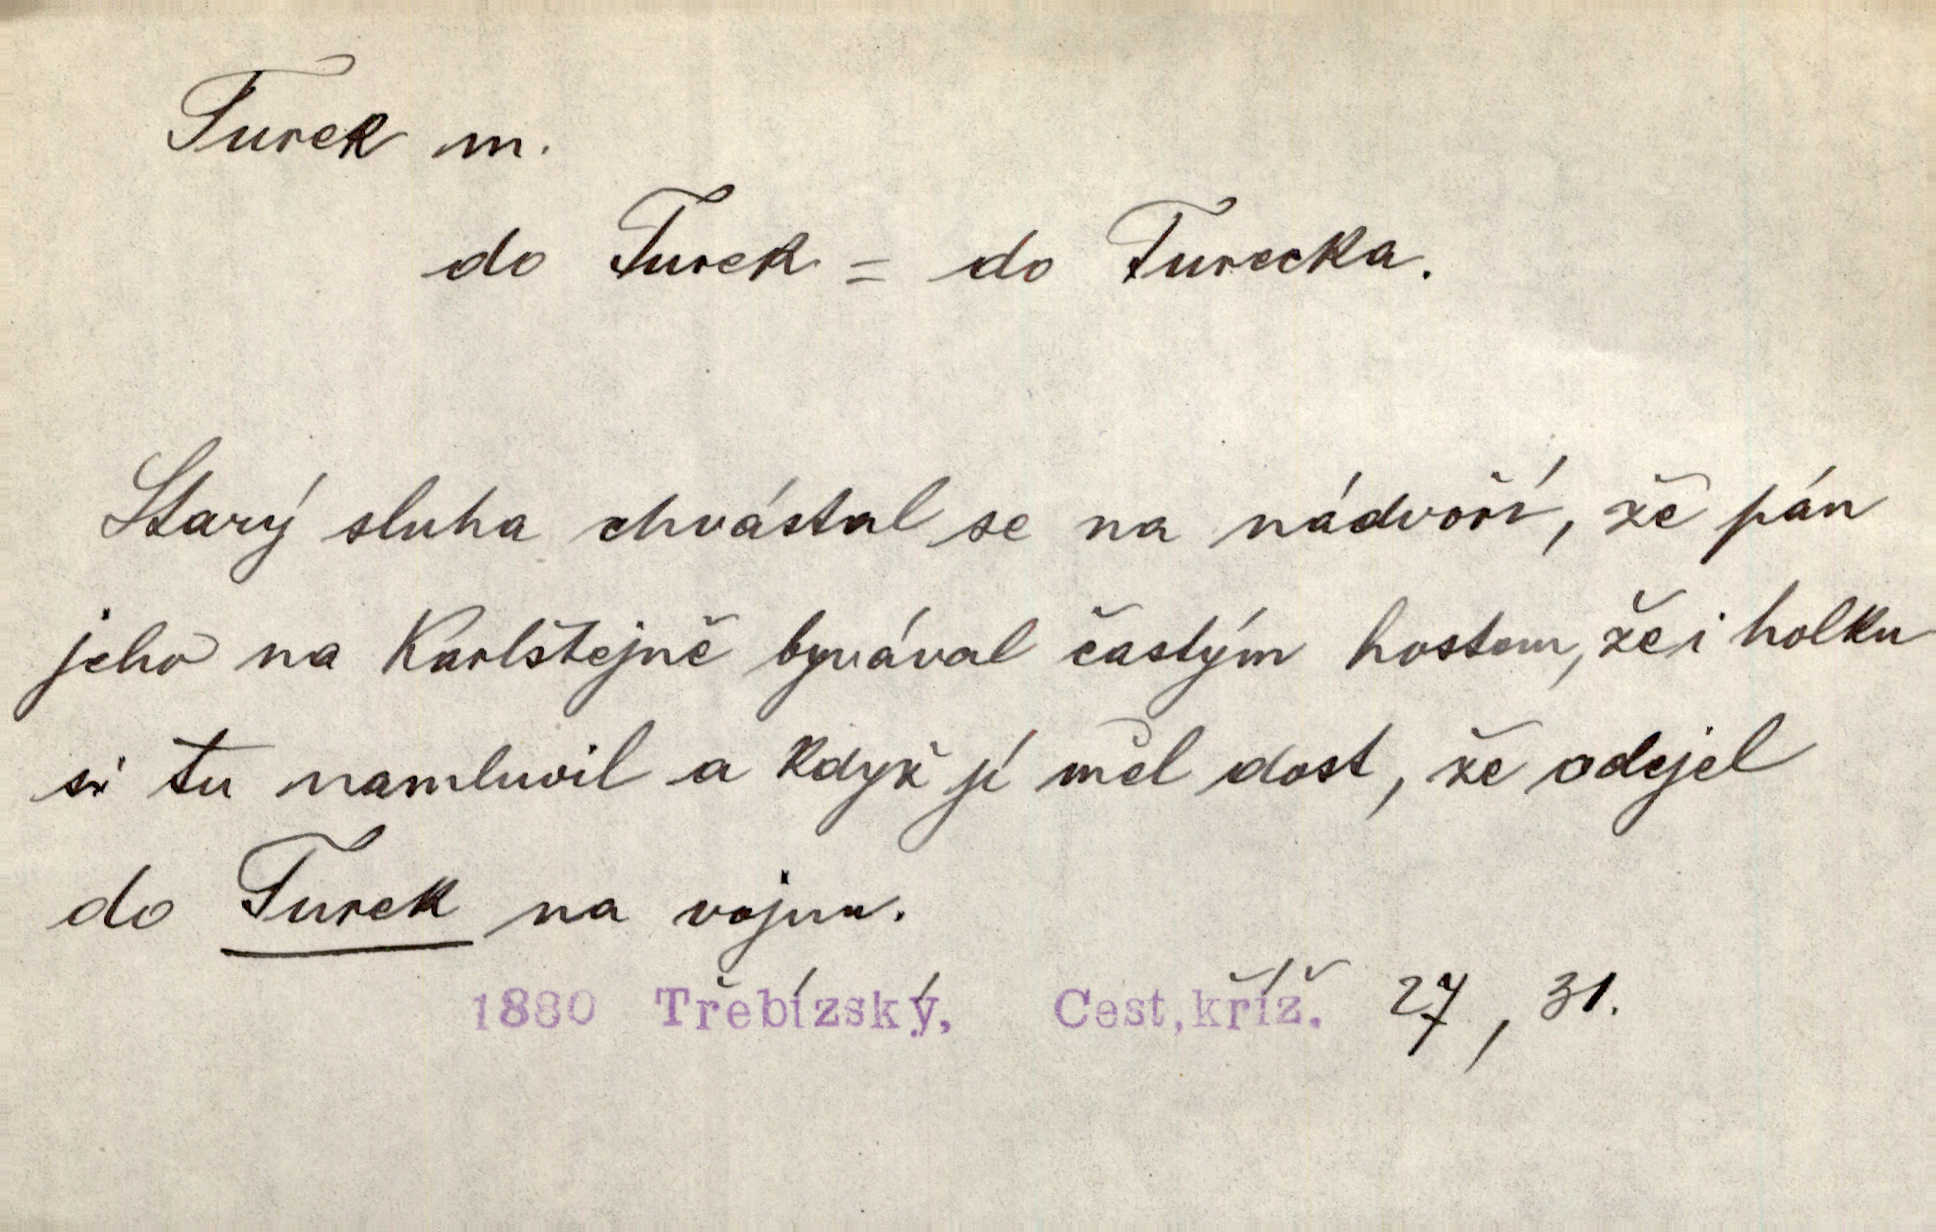 Turek m.
do Turek = do Turecka.
Starý sluha chvástal se na nádvoří, že pán
jeho na Karlštejně býval častým hostem, že i holku
si tu namluvil a když jí měl dost, že odejel
do Turek na vojnu.
1880 Třebízský, Cest, kříž. 27, 31.